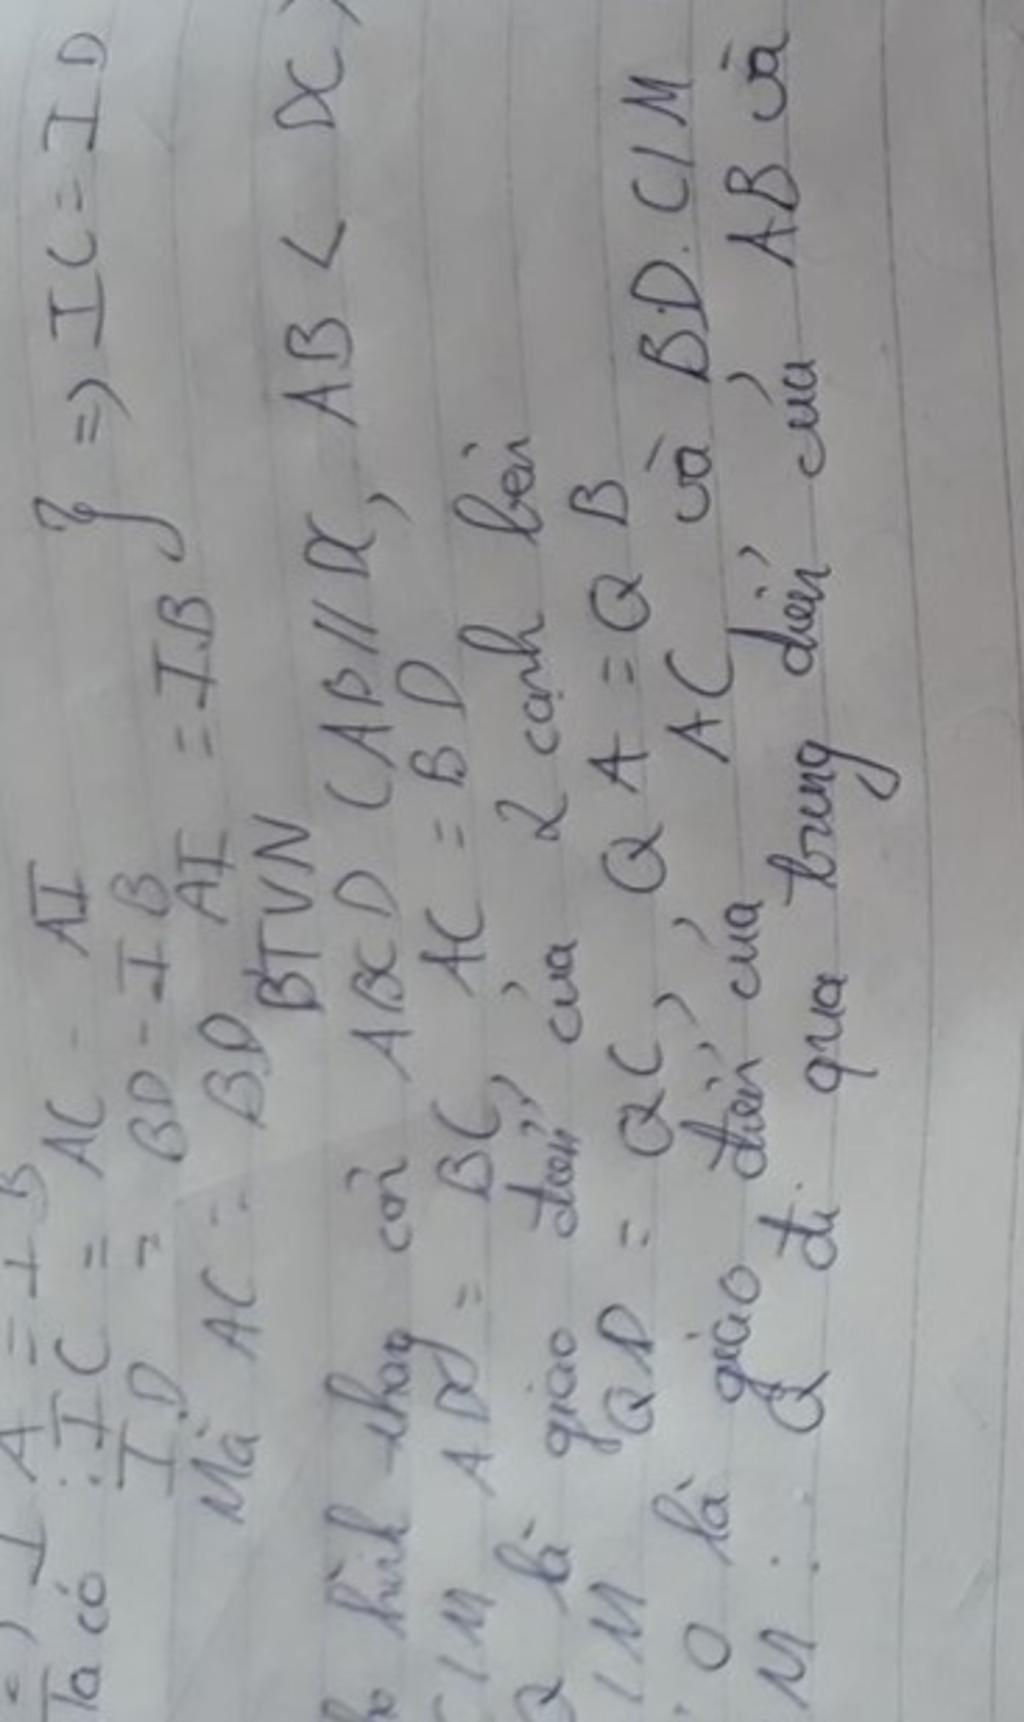 IA = IB
Ta có : IC = AC - AI
ID = BD - IB } => IC = ID
Mà AC = BD AI = IB
BTVN
hình thang cân ABCD (AB // DC, AB < DC)
C/M AD = BC, AC = BD
Q là giao điểm của 2 cạnh bên
C/M QD = QC, QA = QB
O là giao điểm của AC và BD. C/M
Q đi qua trung điểm của AB và